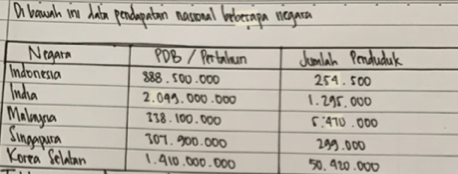 Di bawah ini data pendapatan nasional beberapa negara
Negara PDB / Pertahun Jumlah Penduduk
Indonesia 888.500.000 254.500
India 2.049.000.000 1.295.000
Malaysia 338.100.000 5.470.000
Singapura 307.900.000 299.000
Korea Selatan 1.410.000.000 50.420.000